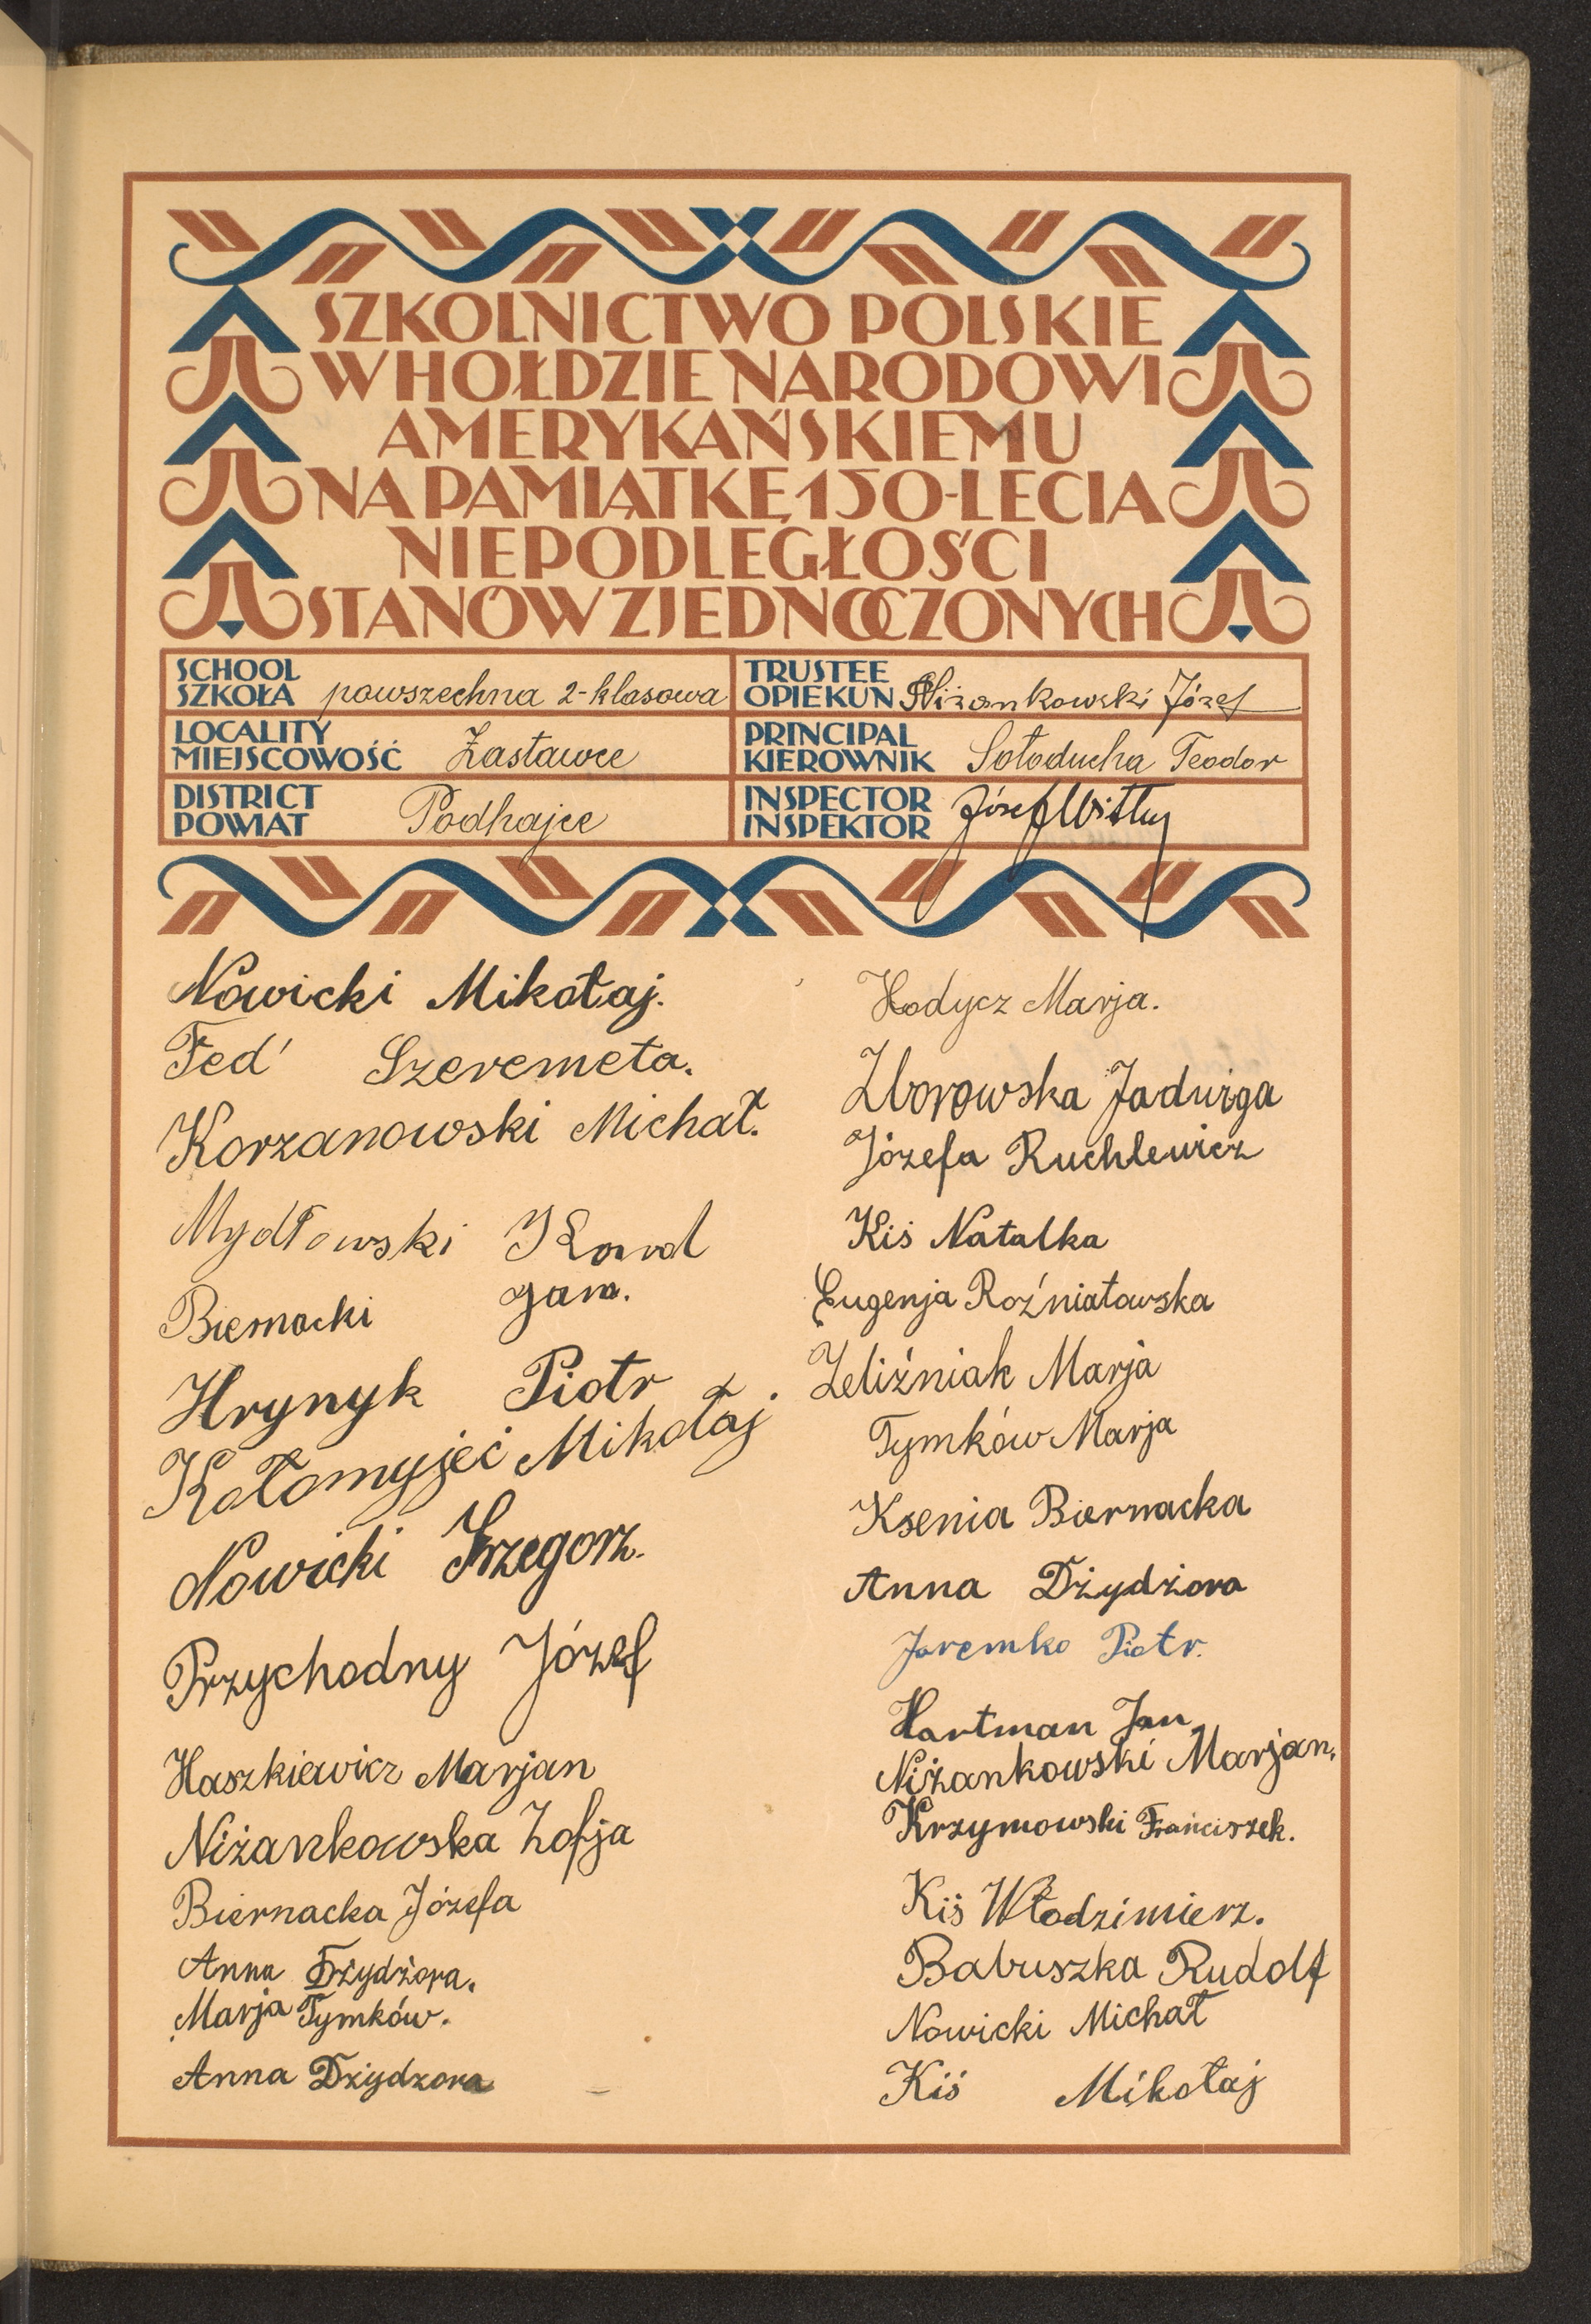 SZKOLNICTWO POLSKIE
W HOŁDZIE NARODOWI
AMERYKAŃSKIEMU
NA PAMIĄTKĘ 150-LECIA
NIEPODLEGŁOŚCI
STANÓW ZJEDNOCZONYCH
SCHOOL
SZKOŁA powszechna 2-klasowa
TRUSTEE
OPIEKUN Niżankowski Józef
LOCALITY
MIEJSCOWOŚĆ Zastawce
PRINCIPAL
KIEROWNIK Sołoducha Teodor
DISTRICT
POWIAT Podhajce
INSPECTOR
INSPEKTOR Józef Witty
Nowicki Mikołaj.
Fed' Szeremeta.
Korzanowski Michał.
Mydłowski Karol
Biernacki Jan.
Hrynyk Piotr
Kołomyjeć Mikołaj.
Nowicki Grzegorz.
Przychodny Józef
Haszkiewicz Marjan
Niżankowska Zofja
Biernacka Józefa
Anna Dżydżora.
Marja Tymków.
Anna Dżydzora
Hodycz Marja.
Zborowska Jadwiga
Józefa Ruchlewicz
Kiś Natalka
Eugenja Roźniatowska
Zeliźniak Marja
Tymków Marja
Ksenia Biernacka
Anna Dżydżora
Jaremko Piotr.
Hartman Jan
Niżankowski Marjan.
Krzymowski Franciszek.
Kiś Włodzimierz.
Babuszka Rudolf
Nowicki Michał
Kiś Mikołaj